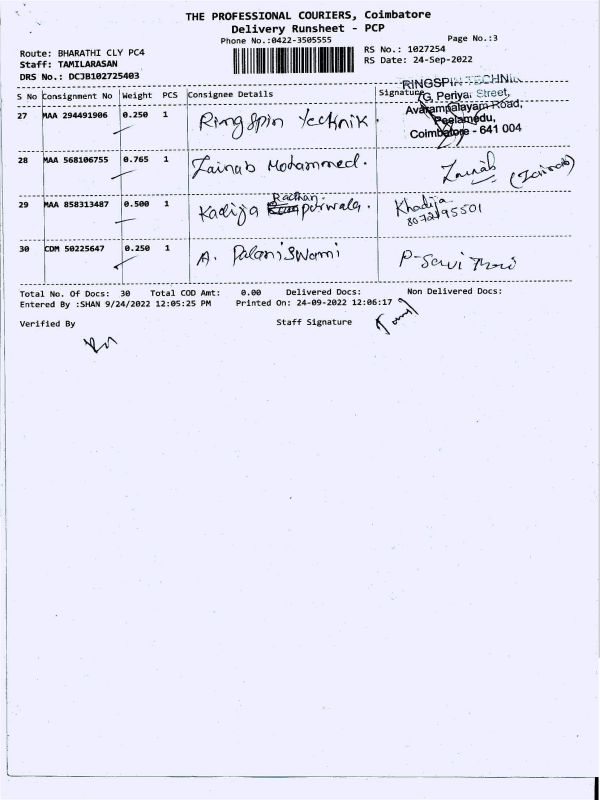 THE PROFESSIONAL COURIERS, Coimbatore
Delivery Runsheet - PCP
Phone No.:0422-3505555
Page No.:3
Route: BHARATHI CLY PC4
RS No.: 1027254
Staff: TAMILARASAN
RS Date: 24-Sep-2022
DRS No.: DCJB102725403
S No Consignment No Weight PCS Consignee Details Signature
RINGSPIN TECHNIK
7G, Periyar Street,
Avarampalayam Road,
Peelamedu,
Coimbatore - 641 004
27 MAA 294491906 0.250 1 Ringspin Technik.
28 MAA 568106755 0.765 1 Zainab Mohammed. Zainab (Zainab)
29 MAA 858313487 0.500 1 Kadija purwala. Khadija
8072195501
30 CDM 50225647 0.250 1 A. Palaniswami
Total No. Of Docs: 30 Total COD Amt: 0.00 Delivered Docs: Non Delivered Docs:
Entered By :SHAN 9/24/2022 12:05:25 PM Printed On: 24-09-2022 12:06:17
Verified By Staff Signature